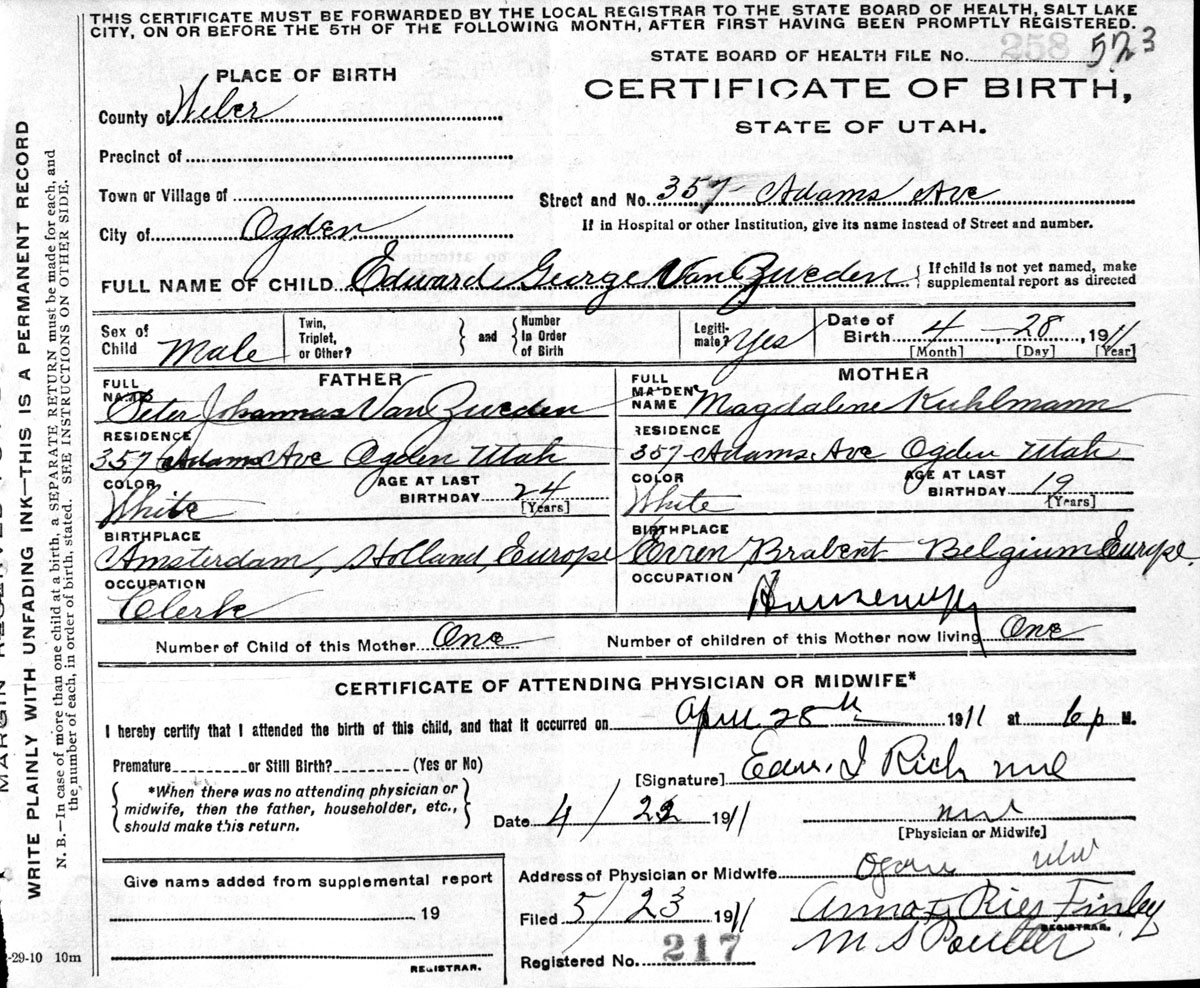 THIS CERTIFICATE MUST BE FORWARDED BY THE LOCAL REGISTRAR TO THE STATE BOARD OF HEALTH, SALT LAKE
CITY, ON OR BEFORE THE 5TH OF THE FOLLOWING MONTH, AFTER FIRST HAVING BEEN PROMPTLY REGISTERED.
STATE BOARD OF HEALTH FILE No. 258 523
PLACE OF BIRTH
CERTIFICATE OF BIRTH,
STATE OF UTAH.
County of Weber
Precinct of
Town or Village of
Street and No. 357 Adams Ave
City of Ogden
If in Hospital or other Institution, give its name instead of Street and number.
FULL NAME OF CHILD Edward George Van Zweden
If child is not yet named, make
supplemental report as directed
Sex of
Child Male
Twin,
Triplet,
or Other?
and
Number
In Order
of Birth
Legiti-
mate? Yes
Date of
Birth 4, 28, 1911
[Month] [Day] [Year]
FATHER
FULL
NAME Peter Johannas Van Zweden
RESIDENCE
357 Adams Ave Ogden Utah
COLOR
White
AGE AT LAST
BIRTHDAY 24
[Years]
BIRTHPLACE
Amsterdam, Holland, Europe
OCCUPATION
Clerk
MOTHER
FULL
MAIDEN
NAME Magdalene Kuhlmann
RESIDENCE
357 Adams Ave Ogden Utah
COLOR
White
AGE AT LAST
BIRTHDAY 19
[Years]
BIRTHPLACE
Brabent Belgium Europe.
OCCUPATION
Housewife
Number of Child of this Mother One
Number of children of this Mother now living One
CERTIFICATE OF ATTENDING PHYSICIAN OR MIDWIFE*
I hereby certify that I attended the birth of this child, and that it occurred on April 28th 1911 at 6 p M.
Premature or Still Birth? (Yes or No)
[Signature] Edw. I Rich md
*When there was no attending physician or
midwife, then the father, householder, etc.,
should make this return.
Date 4/ 1911
[Physician or Midwife]
Give name added from supplemental report
19
REGISTRAR.
Address of Physician or Midwife Ogden
Filed 5/23 1911
Anna Ries Finley
REGISTRAR.
M S Poulter
Registered No. 217
-29-10 10m
WRITE PLAINLY WITH UNFADING INK—THIS IS A PERMANENT RECORD
N. B.—In case of more than one child at a birth, a SEPARATE RETURN must be made for each, and
the number of each, in order of birth, stated. SEE INSTRUCTIONS ON OTHER SIDE.